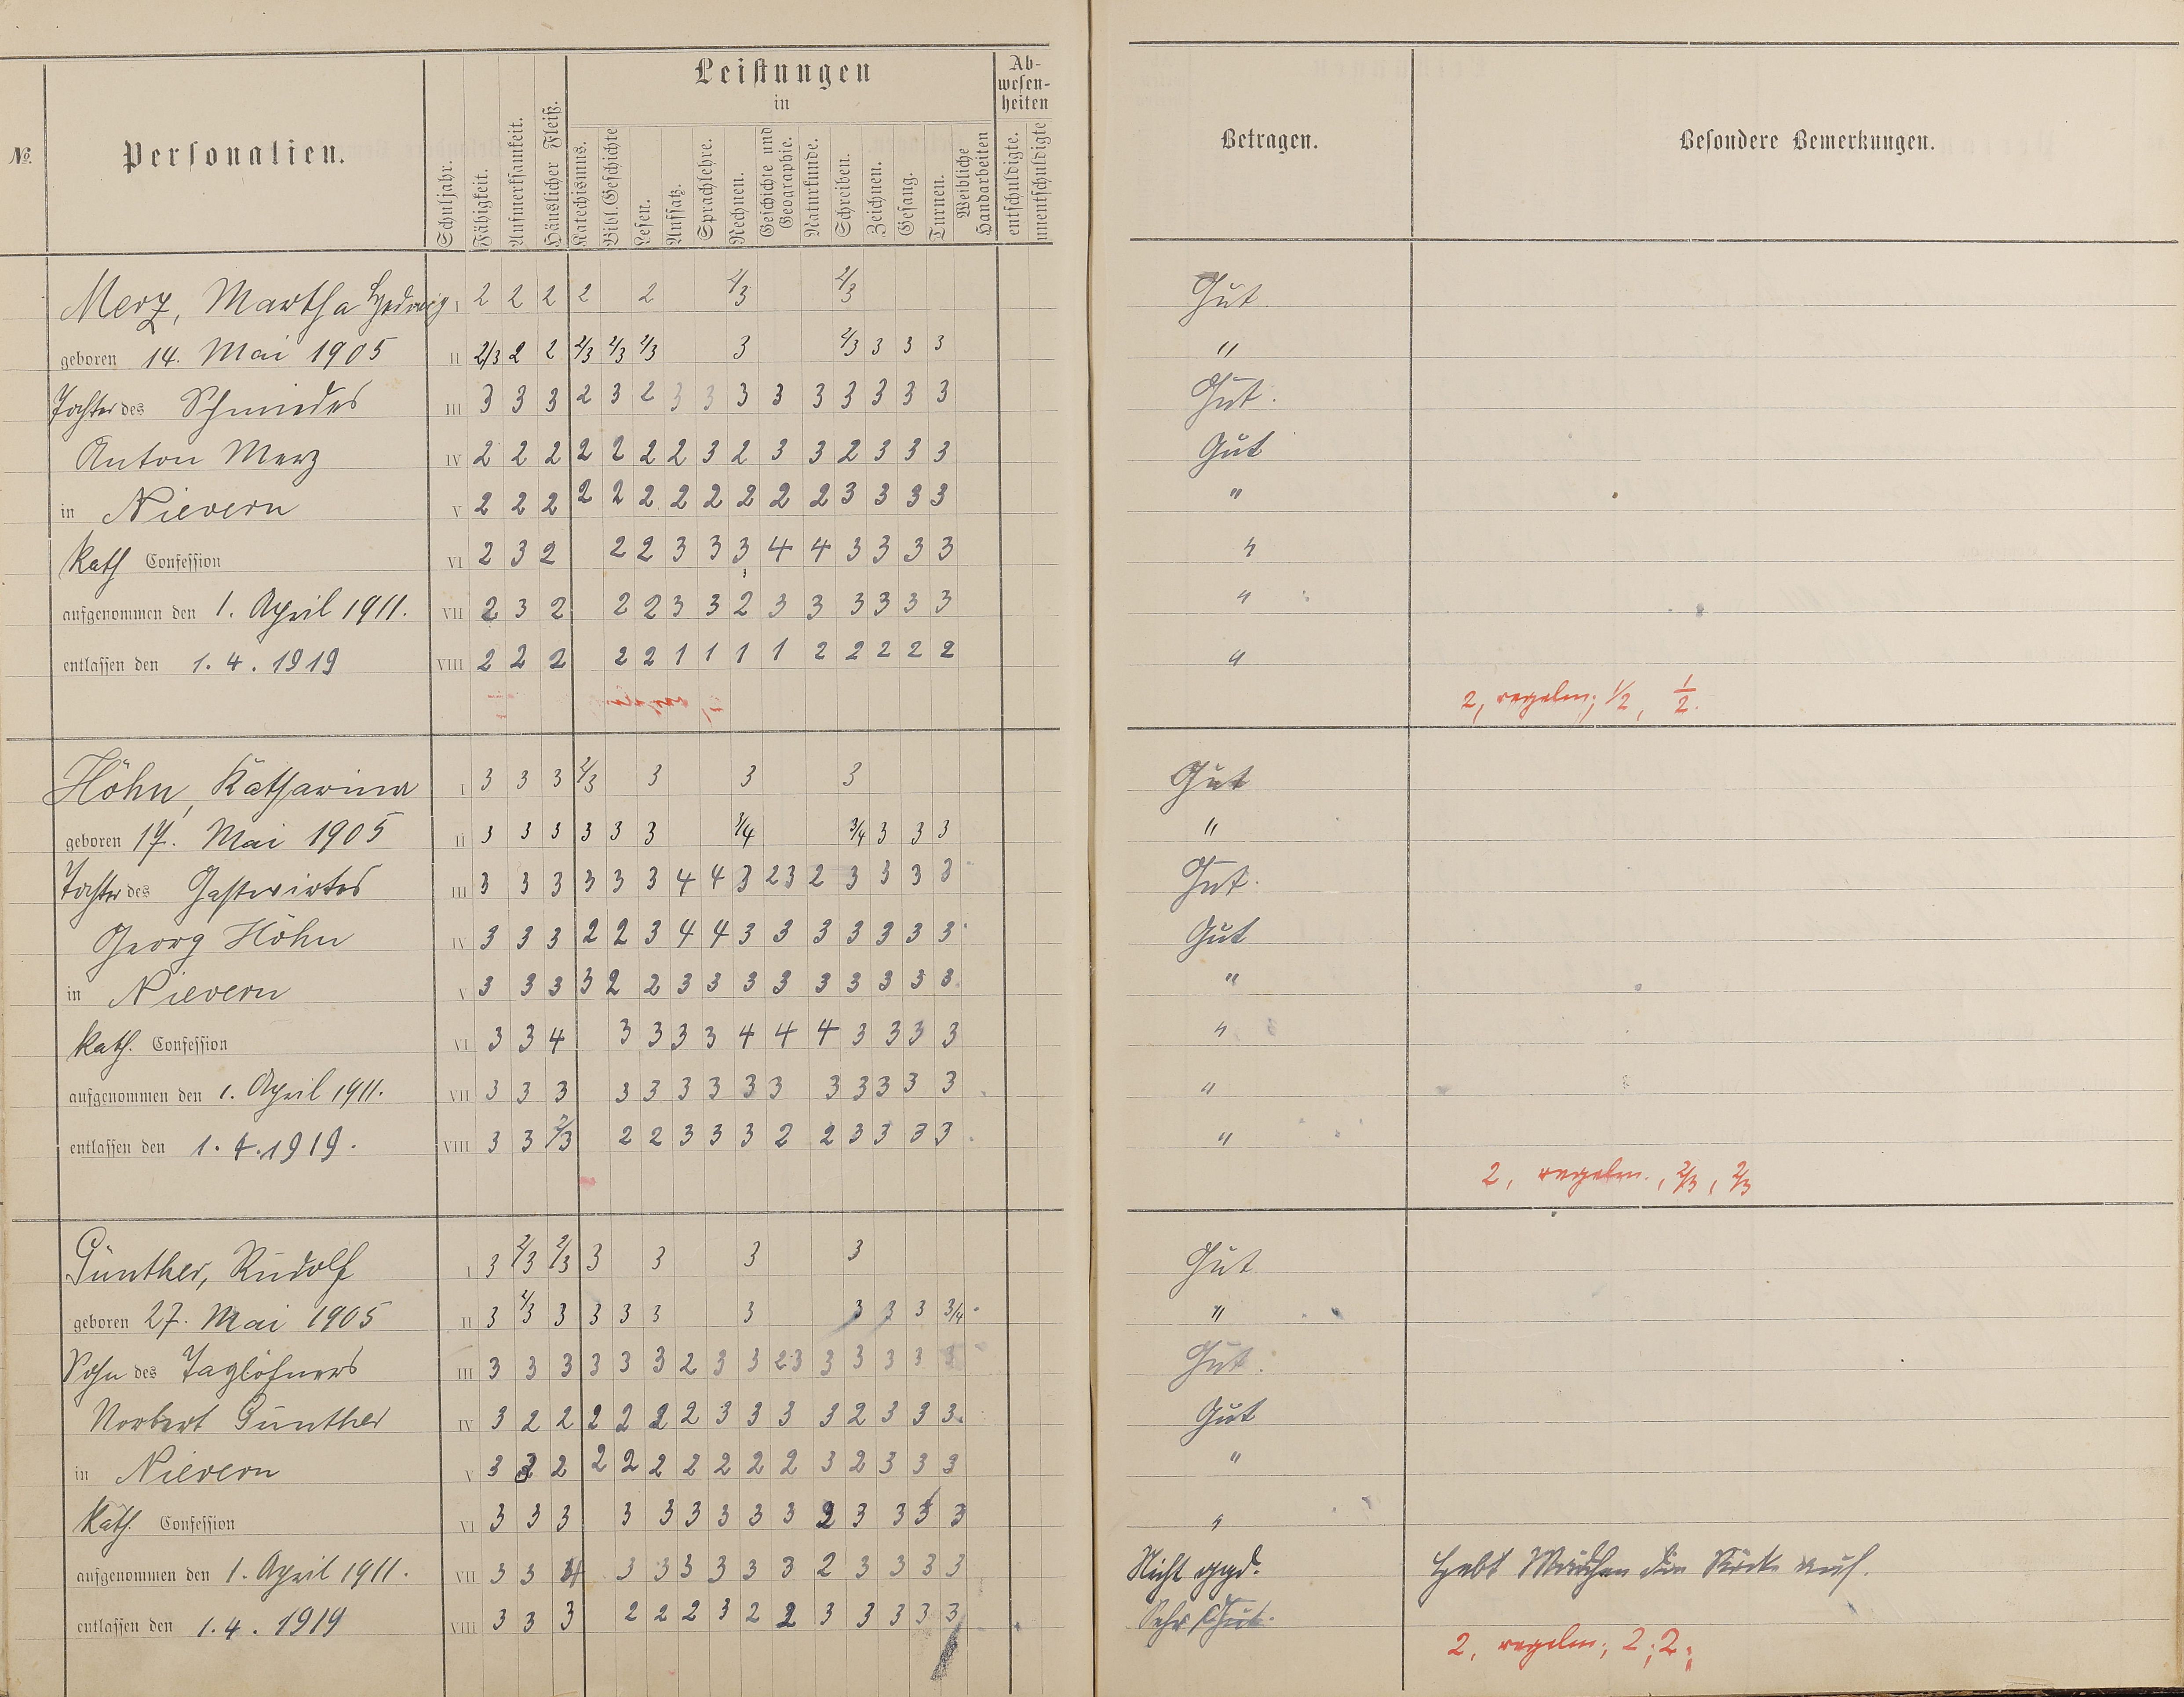 No. Personalien. Schuljahr. Fähigkeit. Aufmerksamkeit. Häuslicher Fleiß. Leistungen in Ab-wesen-heiten Betragen. Besondere Bemerkungen.
Katechismus. Bibl. Geschichte Lesen. Aufsatz. Sprachlehre. Rechnen. Geschichte und Geographie. Naturkunde. Schreiben. Zeichnen. Gesang. Turnen. Weibliche Handarbeiten entschuldigte. unentschuldigte
Merz, Martha Hedwig I 2 2 2 2 2 2/3 2/3 Gut.
geboren 14. Mai 1905 II 2/3 2 2 2/3 2/3 2/3 3 2/3 3 3 3 "
Tochter des Schmiedes III 3 3 3 2 3 2 3 3 3 3 3 3 3 3 3 Gut.
Anton Merz IV 2 2 2 2 2 2 2 3 2 3 3 2 3 3 3 Gut
in Nievern V 2 2 2 2 2 2 2 2 2 2 2 3 3 3 3 "
Kath Confession VI 2 3 2 2 2 3 3 3 4 4 3 3 3 3 "
aufgenommen den 1. April 1911. VII 2 3 2 2 2 3 3 2 3 3 3 3 3 3 "
entlassen den 1. 4. 1919 VIII 2 2 2 2 2 1 1 1 1 2 2 2 2 2 "
2, regelm; 1/2, 1/2.
Höhn, Katharina I 3 3 3 2/3 3 3 3 Gut
geboren 17. Mai 1905 II 3 3 3 3 3 3 3/4 3/4 3 3 3 "
Tochter des Gastwirtes III 3 3 3 3 3 3 4 4 3 23 2 3 3 3 3 Gut.
Georg Höhn IV 3 3 3 2 2 3 4 4 3 3 3 3 3 3 3 Gut
in Nievern V 3 3 3 3 2 2 3 3 3 3 3 3 3 3 3 "
Kath. Confession VI 3 3 4 3 3 3 3 4 4 4 3 3 3 3 "
aufgenommen den 1. April 1911. VII 3 3 3 3 3 3 3 3 3 3 3 3 3 3 "
entlassen den 1. 4. 1919. VIII 3 3 2/3 2 2 3 3 3 2 2 3 3 3 3 "
2, regelm., 2/3, 2/3
Günther, Rudolf I 3 2/3 2/3 3 3 3 3 Gut
geboren 27. Mai 1905 II 3 2/3 3 3 3 3 3 3 3 3 3/4 "
Sohn des Taglöhners III 3 3 3 3 3 3 2 3 3 23 3 3 3 3 3 Gut.
Norbert Günther IV 3 2 2 2 2 2 2 3 3 3 3 2 3 3 3 Gut
in Nievern V 3 2 2 2 2 2 2 2 2 3 2 3 3 3 "
Kath. Confession VI 3 3 3 3 3 3 3 3 3 2 3 3 3 3 "
aufgenommen den 1. April 1911. VII 3 3 3 3 3 3 3 3 2 3 3 3 3 Nicht Hebt Mädchen die Röcke auf.
entlassen den 1. 4. 1919 VIII 3 3 3 2 2 2 3 2 2 3 3 3 3 3 Sehr Gut.
2, regelm; 2; 2;